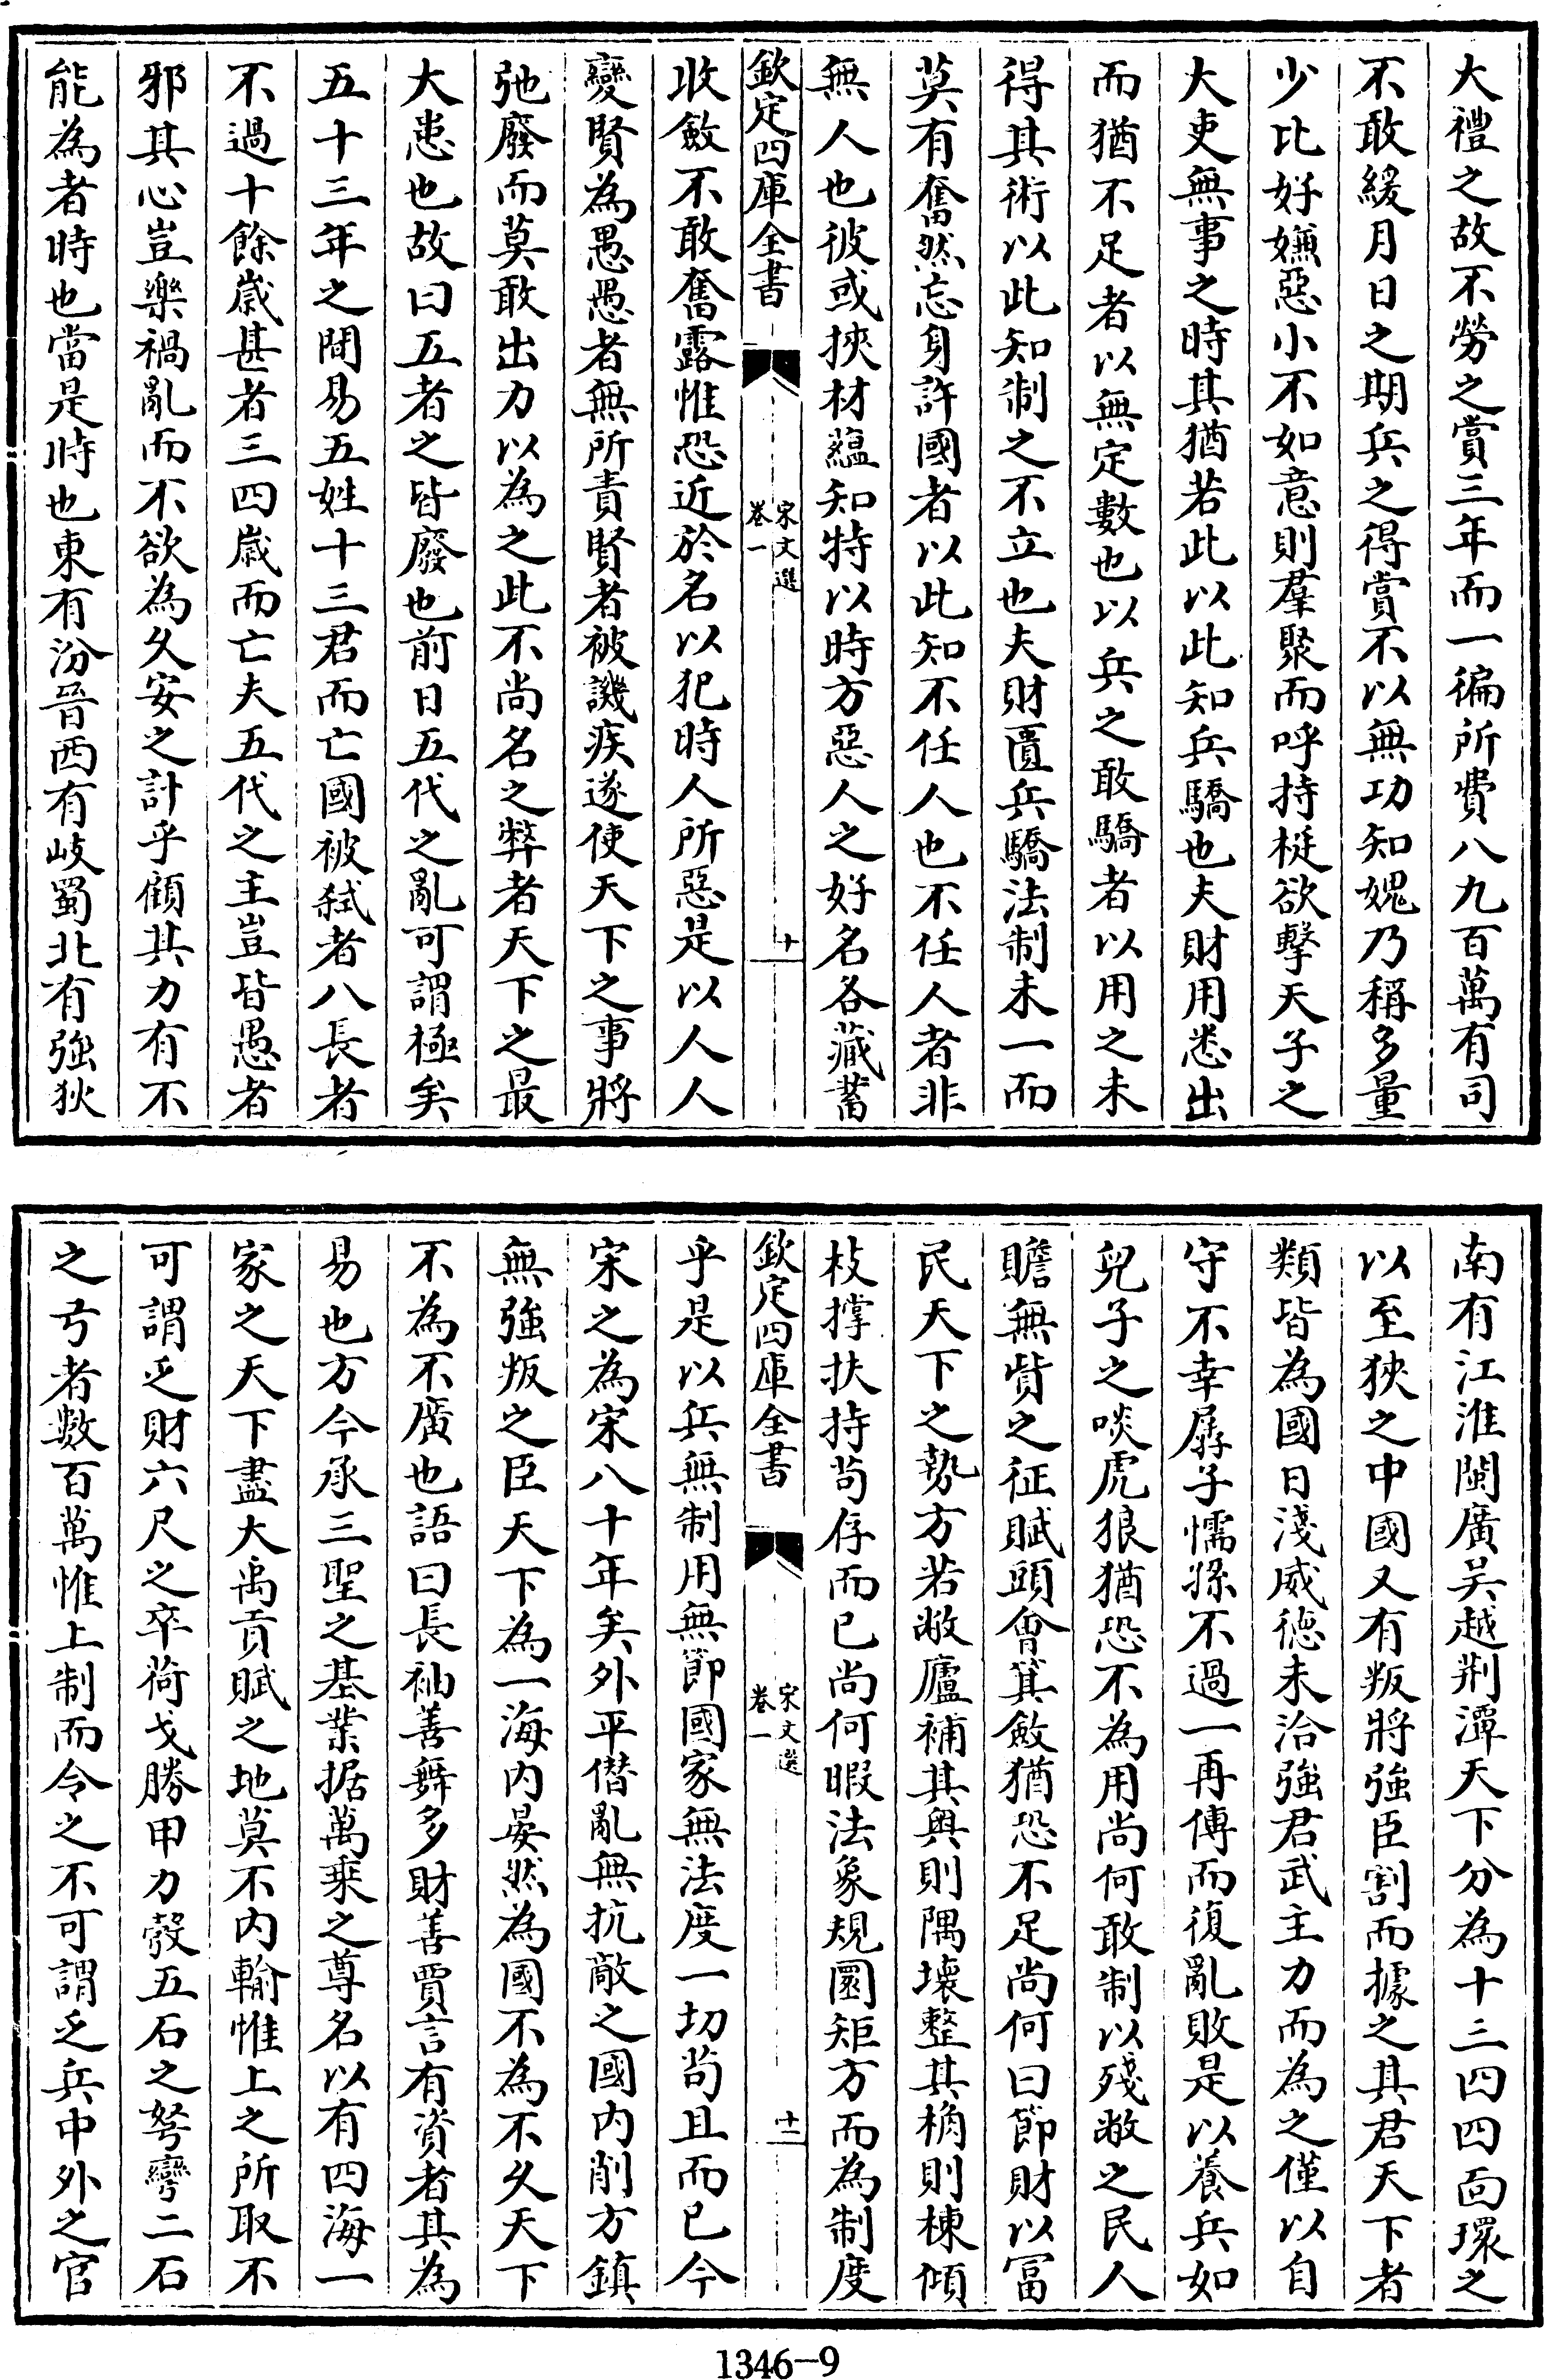 大禮之故不勞之賞三年而一徧所費八九百萬有司
不敢緩月日之期兵之得賞不以無功知媿乃稱多量
少比好嫌惡小不如意則羣聚而呼持梃欲擊天子之
大吏無事之時其猶若此以此知兵驕也夫財用悉出
而猶不足者以無定數也以兵之敢驕者以用之未
得其術以此知制之不立也夫財匱兵驕法制未一而
莫有奮然忘身許國者以此知不任人也不任人者非
無人也彼或挾材蘊知特以時方惡人之好名各藏蓄
欽定四庫全書
宋文選
卷一
十
收斂不敢奮露惟恐近於名以犯時人所惡是以人人
變賢為愚愚者無所責賢者被譏疾遂使天下之事將
弛廢而莫敢出力以為之此不尚名之弊者天下之最
大患也故曰五者之皆廢也前日五代之亂可謂極矣
五十三年之間易五姓十三君而亡國被弑者八長者
不過十餘歲甚者三四歲而亡夫五代之主豈皆愚者
邪其心豈樂禍亂而不欲為久安之計乎顧其力有不
能為者時也當是時也東有汾晉西有岐蜀北有強狄
南有江淮閩廣吳越荆潭天下分為十三四四面環之
以至狹之中國又有叛將強臣割而據之其君天下者
類皆為國日淺威德未洽強君武主力而為之僅以自
守不幸孱子懦孫不過一再傳而復亂敗是以養兵如
兒子之啖虎狼猶恐不為用尚何敢制以殘敝之民人
贍無貲之征賦頭會箕斂猶恐不足尚何曰節財以富
民天下之勢方若敝廬補其奧則隅壞整其桷則棟傾
枝撑扶持茍存而已尚何暇法象規圜矩方而為制度
欽定四庫全書
宋文選
卷一
十一
乎是以兵無制用無節國家無法度一切茍且而已今
宋之為宋八十年矣外平僭亂無抗敵之國内削方鎮
無強叛之臣天下為一海内晏然為國不為不久天下
不為不廣也語曰長袖善舞多財善賈言有資者其為
易也方今承三聖之基業据萬乘之尊名以有四海一
家之天下盡大禹貢賦之地莫不内輸惟上之所取不
可謂乏財六尺之卒荷戈勝甲力彀五石之弩彎二石
之弓者數百萬惟上制而令之不可謂乏兵中外之官
1346-9